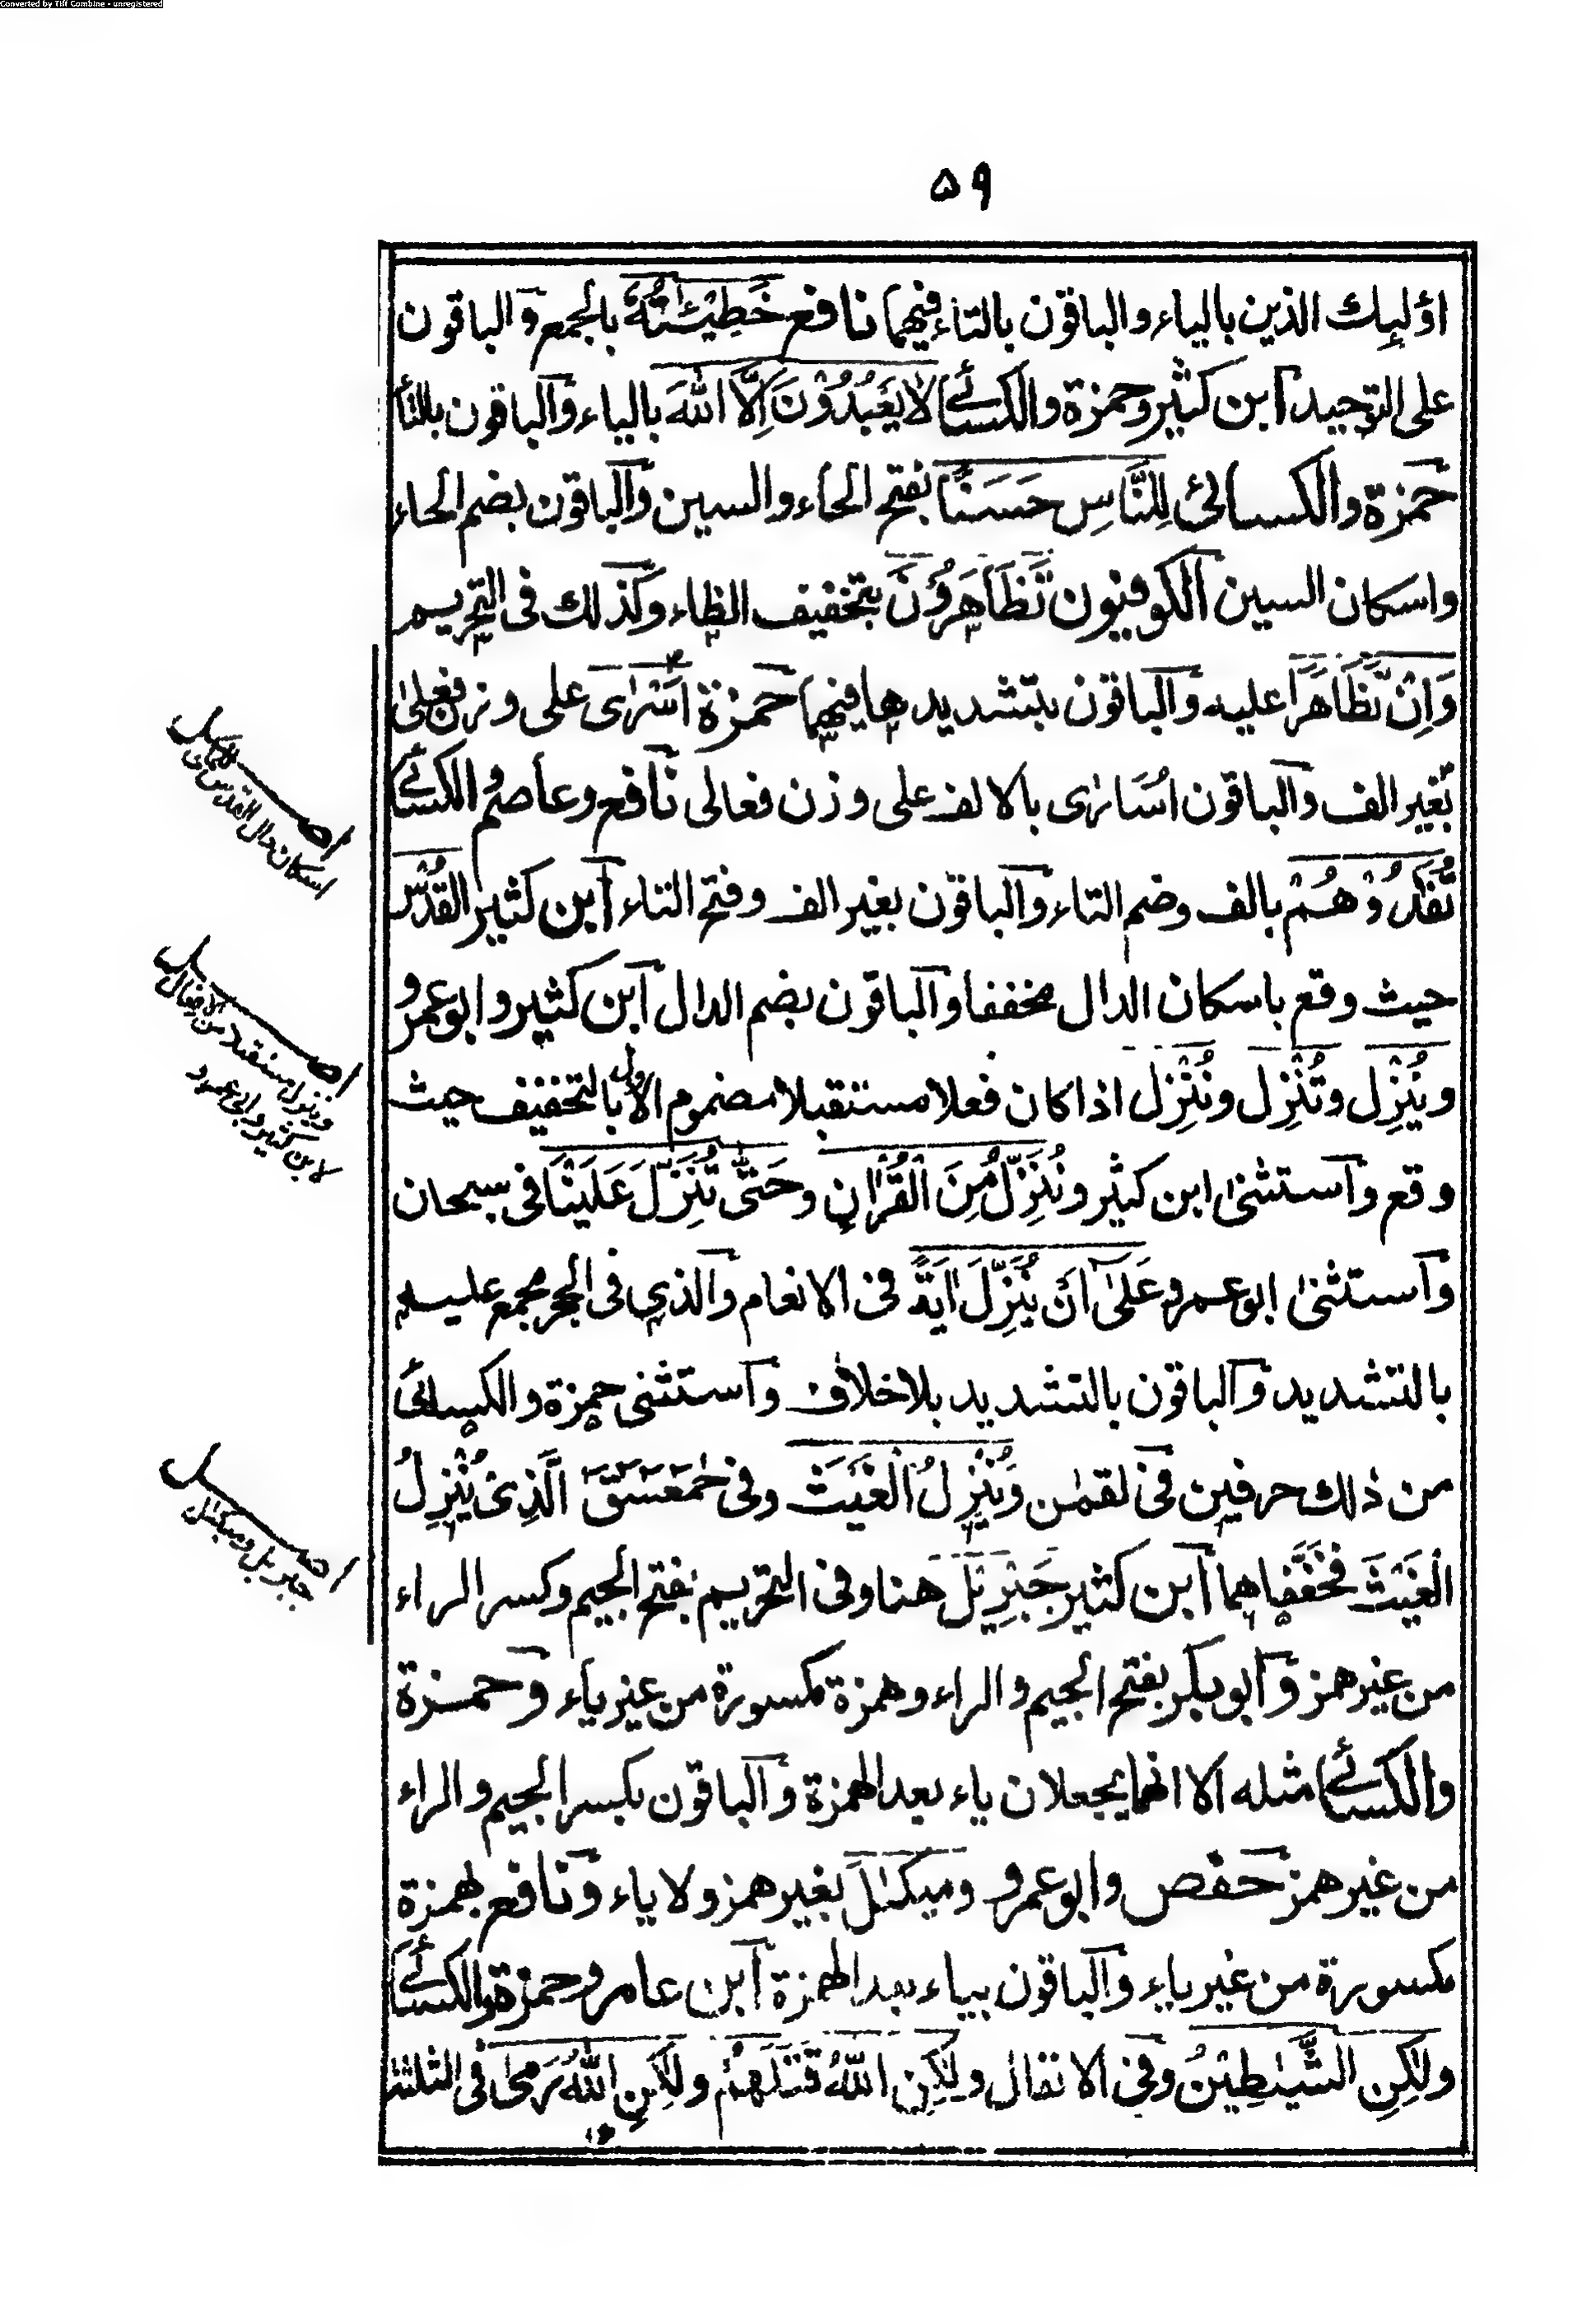 Converted by Tiff Combine - unregistered
۵۹
اولٰئك الذين بالياء والباقون بالتاء فيهما نافع خَطِيْئٰتُهٗ بالجمع والباقون
على التوحيد ابن كثير وحمزة والكسائي لَا يَعْبُدُوْنَ اِلَّا اللّٰهَ بالياء والباقون بالتاء
حمزة والكسائى لِلنَّاسِ حَسَنًا بفتح الحاء والسين والباقون بضم الحاء
واسكان السين الكوفيون تَظَاهَرُوْنَ بتخفيف الظاء وكذلك فى التحريم
وَاِنْ تَظَاهَرَا عليه والباقون بتشديدها فيهما حمزة اَسْرٰى على وزن فعلىٰ
بغير الف والباقون اُسَارٰى بالالف على وزن فعالى نافع وعاصم والكسائي
تُفٰدُوْهُمْ بالف وضم التاء والباقون بغير الف وفتح التاء ابن كثير القُدْسِ
حيث وقع باسكان الدال مخففا والباقون بضم الدال ابن كثير وابو عمرو
ويُنْزِل وتُنْزِل ونُنْزِل اذا كان فعلا مستقبلا مضموم الاول بالتخفيف حيث
وقع واستثنىٰ ابن كثير ونُنَزِّلُ مِنَ الْقُرْاٰنِ وحَتّٰى تُنَزِّلَ عَلَيْنَا فى سبحان
واستثنىٰ ابو عمرو عَلٰى اَنْ يُّنَزِّلَ اٰيَةً فى الانعام والذى فى الحجر مجمع عليه
بالتشديد والباقون بالتشديد بلا خلاف واستثنى حمزة والكسائى
من ذٰلك حرفين فى لقمٰن وَيُنْزِلُ الْغَيْثَ وفى حٰمٓعٓسٓقٓ الَّذِىْ يُنْزِلُ
الْغَيْثَ فخَفَّفاهما ابن كثير جَبْرِيْلَ هنا وفى التحريم بفتح الجيم وكسر الراء
من غير همز وابو بكر بفتح الجيم والراء وهمزة مكسورة من غير ياء وحمزة
والكسائي مثله الا انهما يجعلان ياء بعد الهمزة والباقون بكسر الجيم والراء
من غير همز حفص وابو عمرو وميكٰلَ بغير همز ولا ياء ونافع بهمزة
مكسورة من غير ياء والباقون بياء بعد الهمزة ابن عامر وحمزة والكسائي
ولٰكِنِ الشَّيٰطِيْنُ وفى الانفال ولٰكِنِ اللّٰهُ قَتَلَهُمْ ولٰكِنِ اللّٰهُ رَمٰى فى الثلثة
اصل
اسكان دال القدس
اصل
وينزل مستقبلا من الافعال
لابن كثير وابى عمرو
اصل
جبريل وميكٰل